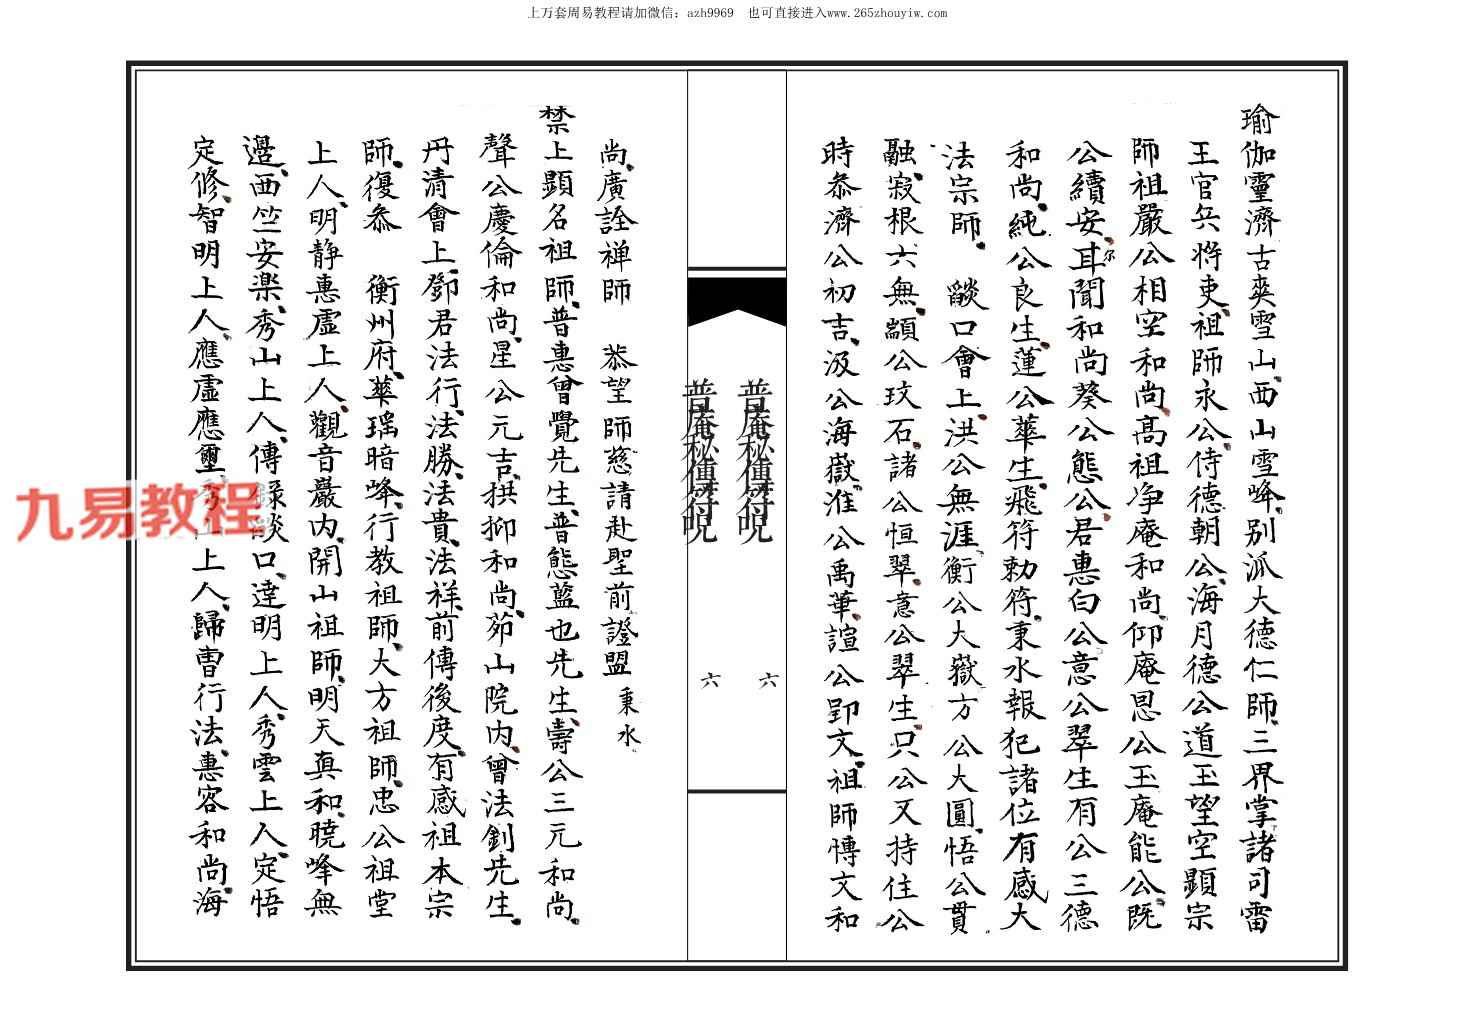 上万套周易教程请加微信：azh9969　也可直接进入www.265zhouyiw.com
瑜伽靈濟古奭雪山西山雪峰别派大德仁師三界掌諸司雷
王官兵將吏祖師永公侍德朝公海月德公道玉望空顕宗
師祖嚴公相空和尚高祖净庵和尚仰庵思公玉庵能公既
公續安耳尔聞和尚葵公態公君惠白公意公翠生有公三德
和尚純公良生蓮公華生飛符勅符秉水報犯諸位有感大
法宗師　燄口會上洪公無涯衡公大嶽方公大圓悟公貫
融寂根六無顓公玟石諸公恒翠意公翠生只公又持住公
時叅濟公初吉汲公海嶽淮公禹華諠公卽文祖師博文和
普庵秘傳符咒　六
普庵秘傳符咒　六
尚廣詮禅師　恭望師慈請赴聖前證盟　秉水
禁上顕名祖師普惠曾覺先生普態藍也先生壽公三元和尚
聲公慶倫和尚星公元吉拱抑和尚茆山院内曾法釗先生
丹清會上鄧君法行法勝法貴法祥前傳後度有感祖本宗
師復叅　衡州府華瑶暗峰行教祖師大方祖師忠公祖堂
上人明静惠虚上人觀音嚴内開山祖師明天真和曉峰無
邊西竺安楽秀山上人傳録燄口達明上人秀雲上人定悟
定修智明上人應虚應璽秀山上人歸曺行法惠容和尚海
九易教程